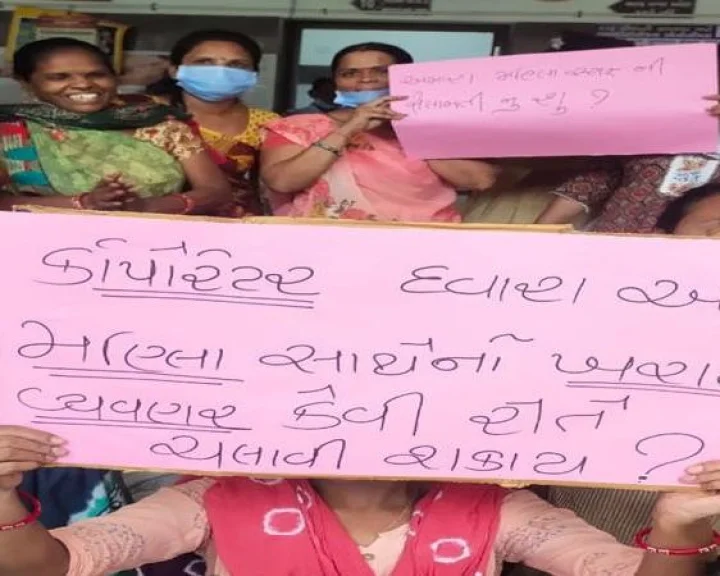 અમારા મહિલા સ્ટાફ ની
સેલામતી નુ શું ?
કોર્પોરેટર દ્વારા
મહિલા સાથેનો
વ્યવહાર કેવી રીતે
ચલાવી શકાય ?